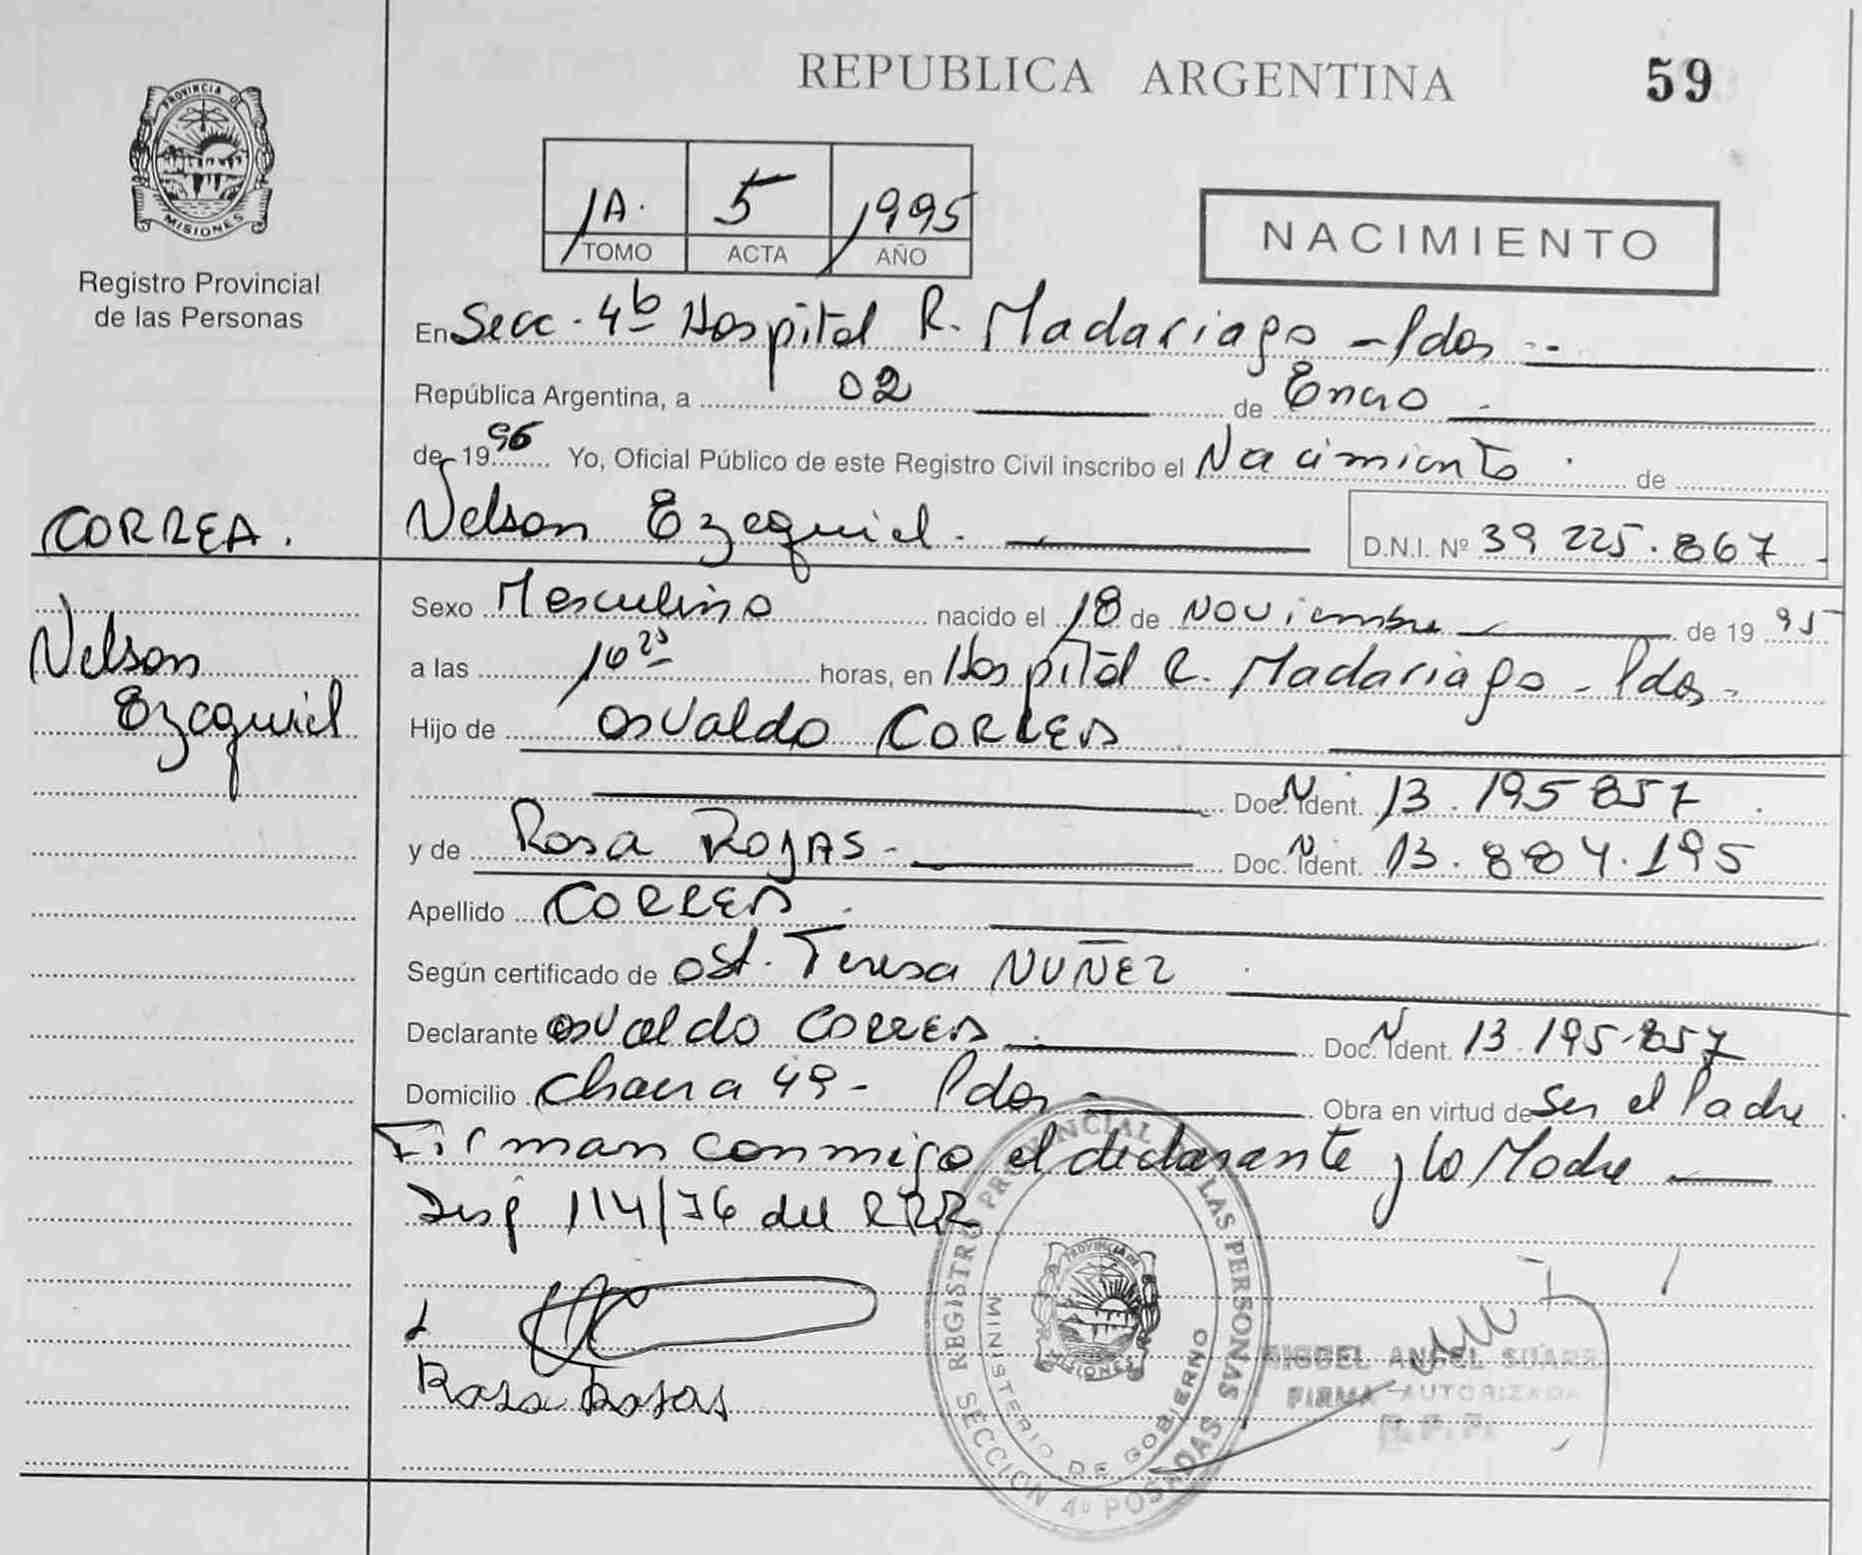 REPUBLICA ARGENTINA 59
PROVINCIA DE
MISIONES
Registro Provincial
de las Personas
1A. 5 1995
TOMO ACTA AÑO
NACIMIENTO
En Secc. 4ª Hospital R. Madariaga - Pdas -
República Argentina, a 02 de Enero
de 1996 Yo, Oficial Público de este Registro Civil inscribo el Nacimiento de
CORREA.
Nelson Ezequiel. D.N.I. Nº 39 225.867
Sexo Masculino nacido el 18 de Noviembre de 19 95
Nelson
Ezequiel
a las horas, en Hospital R. Madariaga - Pdas -
Hijo de Osvaldo CORREA
Doc. Ident. 13.195 857
y de Rosa ROJAS - Doc. Ident. 13.884.195
Apellido CORREA.
Según certificado de Ost. Teresa NUÑEZ
Declarante Osvaldo CORREA. Doc. Ident. 13.195.857
Domicilio Chacra 49 - Pdas - Obra en virtud de Ser el Padre
Firman conmigo el declarante y la Madre
Disp 114/76 del RPP
Rosa Rojas
REGISTRO PROVINCIAL DE LAS PERSONAS
MINISTERIO DE GOBIERNO
SECCION 4º POSADAS
PROVINCIA DE
MISIONES
MIGUEL ANGEL SUAREZ
FIRMA AUTORIZADA
R. P. P.